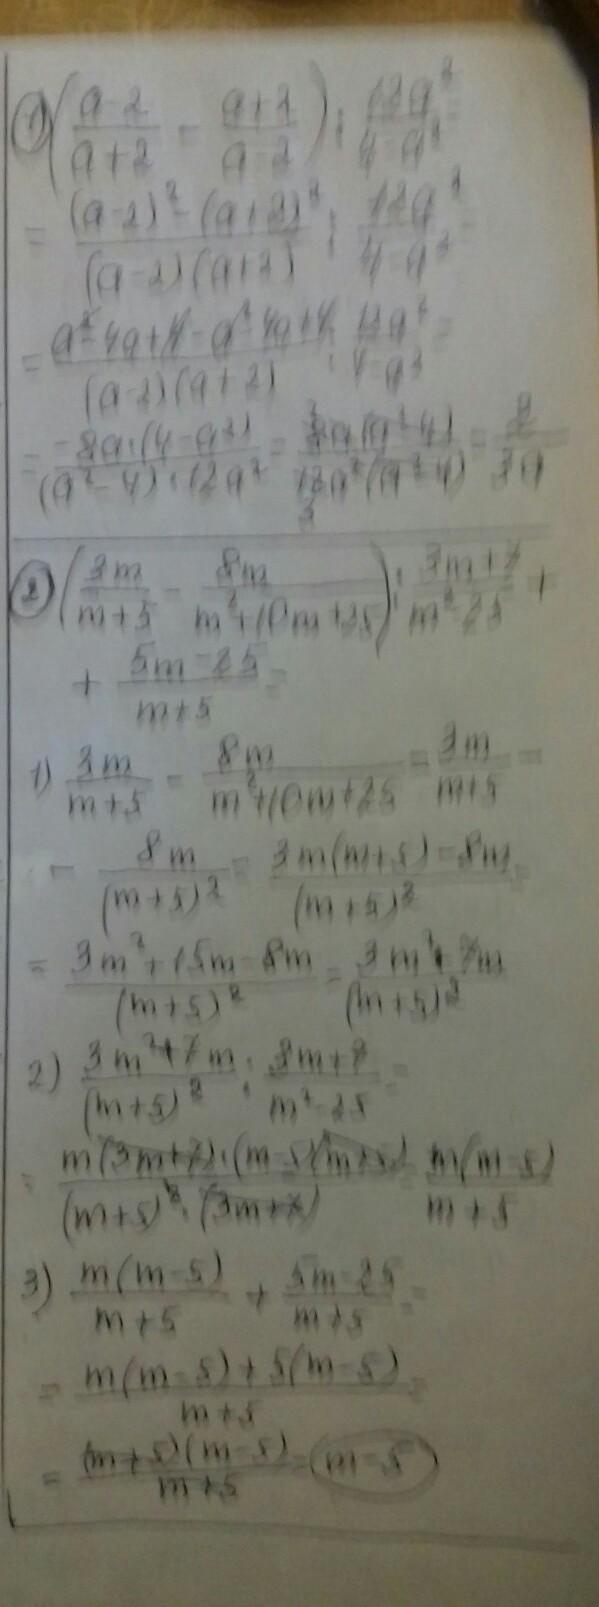 ① ((a-2)/(a+2) - (a+2)/(a-2)) : 12a²/(4-a²) =
= ((a-2)² - (a+2)²)/((a-2)(a+2)) : 12a²/(4-a²) =
= (a²-4a+4-a²-4a+4)/((a-2)(a+2)) : 12a²/(4-a²) =
= (-8a·(4-a²))/((a²-4)·12a²) = (8a(a²-4))/(12a²(a²-4)) = 2/(3a)
② (3m/(m+5) - 8m/(m²+10m+25)) : (3m+7)/(m²-25) +
+ (5m-25)/(m+5) =
1) 3m/(m+5) - 8m/(m²+10m+25) = 3m/(m+5) -
- 8m/(m+5)² = (3m(m+5)-8m)/(m+5)² =
= (3m²+15m-8m)/(m+5)² = (3m²+7m)/(m+5)²
2) (3m²+7m)/(m+5)² : (3m+7)/(m²-25) =
= (m(3m+7)·(m-5)(m+5))/((m+5)²·(3m+7)) = m(m-5)/(m+5)
3) m(m-5)/(m+5) + (5m-25)/(m+5) =
= (m(m-5)+5(m-5))/(m+5) =
= ((m+5)(m-5))/(m+5) = m-5